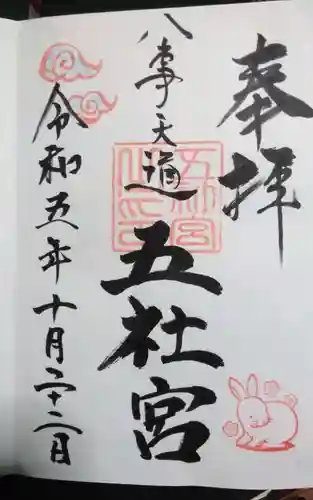 奉拝
八事天道
五社宮
令和五年十月二十二日